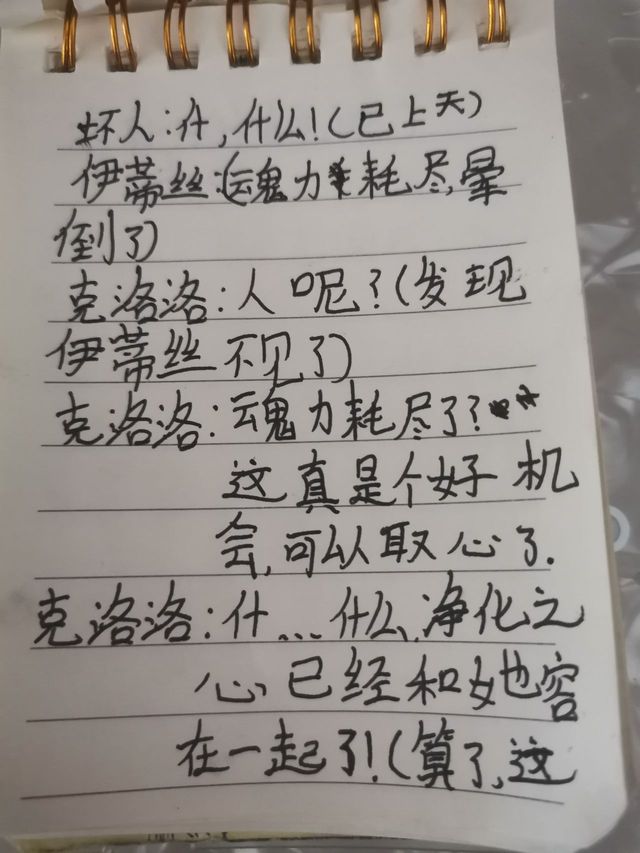 坏人:什,什么!(已上天)
伊蒂丝:(魂力耗尽,晕
倒了)
克洛洛:人呢?(发现
伊蒂丝不见了)
克洛洛:魂力耗尽了?
这真是个好机
会,可以取心了.
克洛洛:什...什么,净化之
心已经和她容
在一起了!(算了,这